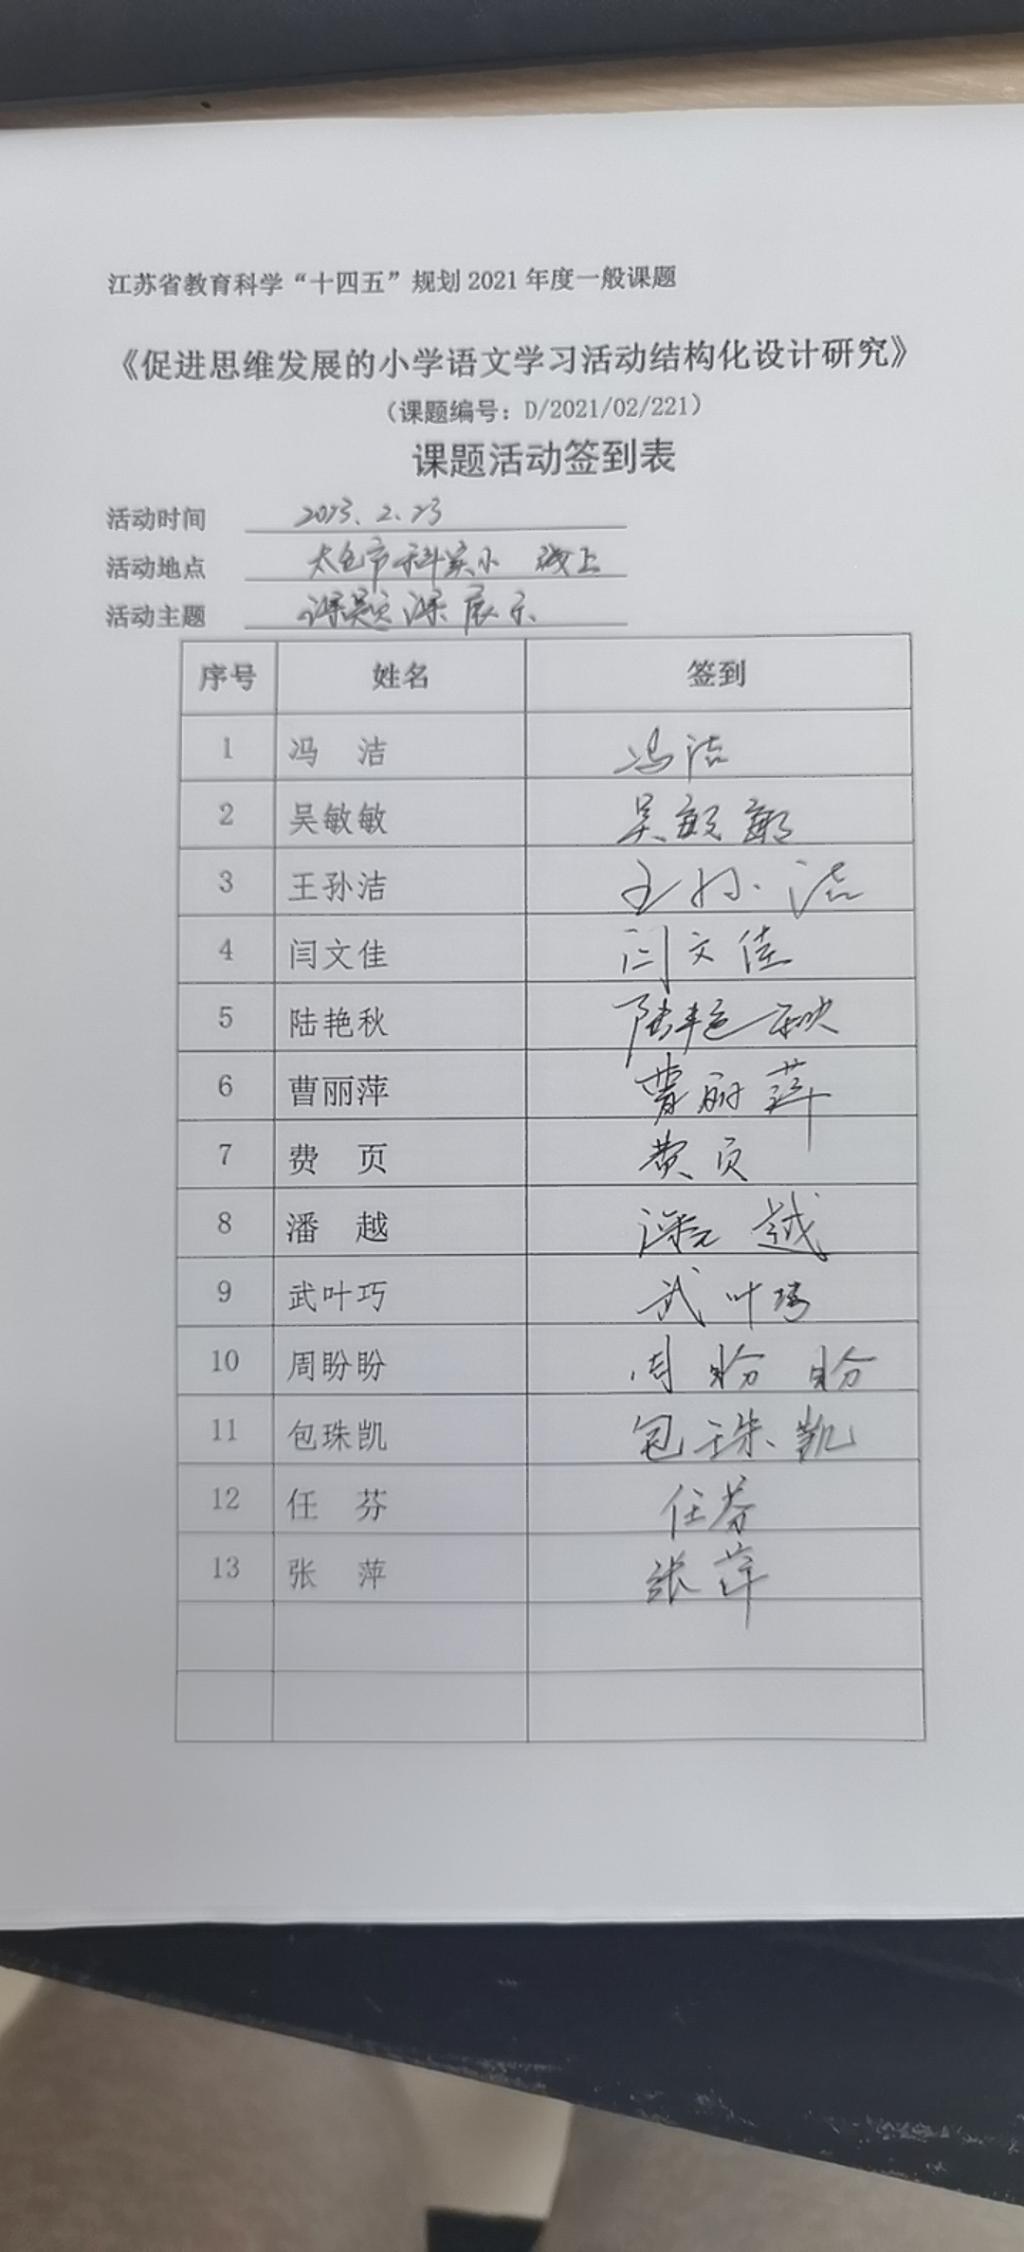 江苏省教育科学“十四五”规划2021年度一般课题
《促进思维发展的小学语文学习活动结构化设计研究》
（课题编号：D/2021/02/221）
课题活动签到表
活动时间 2023.2.23
活动地点 太仓市科实小 线上
活动主题 课题课展示
序号 姓名 签到
1 冯 洁 冯洁
2 吴敏敏 吴敏敏
3 王孙洁 王孙洁
4 闫文佳 闫文佳
5 陆艳秋 陆艳秋
6 曹丽萍 曹丽萍
7 费 页 费页
8 潘 越 潘越
9 武叶巧 武叶巧
10 周盼盼 周盼盼
11 包珠凯 包珠凯
12 任 芬 任芬
13 张 萍 张萍